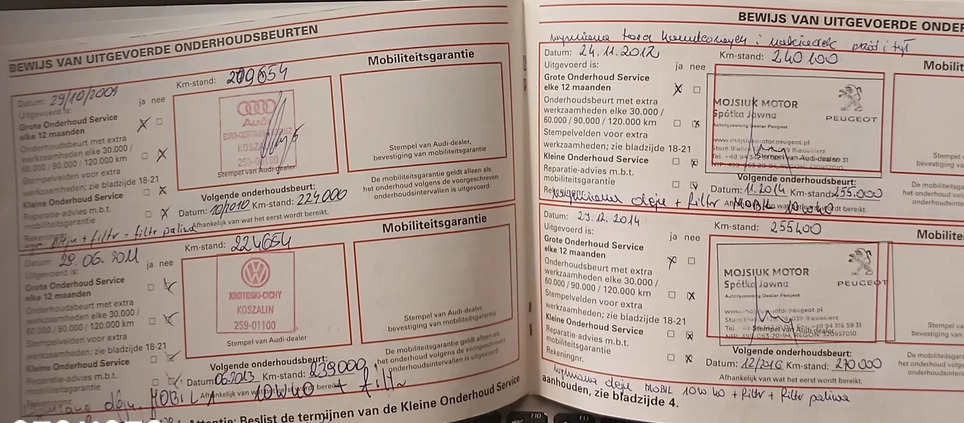 BEWIJS VAN UITGEVOERDE ONDERHOUDSBEURTEN
Datum: 29/10/2009
Uitgevoerd is:
ja nee
Km-stand: 209654
Mobiliteitsgarantie
Grote Onderhoud Service
elke 12 maanden
Onderhoudsbeurt met extra
werkzaamheden elke 30.000 /
60.000 / 90.000 / 120.000 km
Stempelvelden voor extra
werkzaamheden; zie bladzijde 18-21
Kleine Onderhoud Service
Reparatie-advies m.b.t.
mobiliteitsgarantie
Audi
KOSZALIN
Stempel van Audi-dealer
Stempel van Audi-dealer,
bevestiging van mobiliteitsgarantie
Volgende onderhoudsbeurt:
Datum: 10/2010 Km-stand: 224000
Afhankelijk van wat het eerst wordt bereikt.
De mobiliteitsgarantie geldt alleen als
het onderhoud volgens de voorgeschreven
onderhoudsintervallen is uitgevoerd.
+ filtr + filtr paliwa
Datum: 29.06.2011
Uitgevoerd is:
ja nee
Km-stand: 224654
Mobiliteitsgarantie
Grote Onderhoud Service
elke 12 maanden
Onderhoudsbeurt met extra
werkzaamheden elke 30.000 /
60.000 / 90.000 / 120.000 km
Stempelvelden voor extra
werkzaamheden; zie bladzijde 18-21
Kleine Onderhoud Service
Reparatie-advies m.b.t.
mobiliteitsgarantie
KROTOSKI-CICHY
KOSZALIN
259-01100
Stempel van Audi-dealer
Stempel van Audi-dealer,
bevestiging van mobiliteitsgarantie
Volgende onderhoudsbeurt:
Datum: 06.2013 Km-stand: 239000
Afhankelijk van wat het eerst wordt bereikt.
De mobiliteitsgarantie geldt alleen als
het onderhoud volgens de voorgeschreven
onderhoudsintervallen is uitgevoerd.
oleju MOBIL 10W40 + filtr
Attentie: Beslist de termijnen van de Kleine Onderhoud Service
BEWIJS VAN UITGEVOERDE ONDER
wymiana tarcz hamulcowych i nakładek przód i tył
Datum: 24.11.2012
Km-stand: 240100
Mobilit
Uitgevoerd is:
ja nee
Grote Onderhoud Service
elke 12 maanden
Onderhoudsbeurt met extra
werkzaamheden elke 30.000 /
60.000 / 90.000 / 120.000 km
Stempelvelden voor extra
werkzaamheden; zie bladzijde 18-21
Kleine Onderhoud Service
Reparatie-advies m.b.t.
mobiliteitsgarantie
MOJSIUK MOTOR
Spółka Jawna
PEUGEOT
Stempel van Audi-dealer
Volgende onderhoudsbeurt:
Datum: 11.2014 Km-stand: 255.000
wymiana oleju + filtr MOBIL 10W40
De mobiliteitsg
het onderhoud vol
onderhoudsinterv
Datum: 29.12.2014
Km-stand: 255400
Mobilite
Uitgevoerd is:
ja nee
Grote Onderhoud Service
elke 12 maanden
Onderhoudsbeurt met extra
werkzaamheden elke 30.000 /
60.000 / 90.000 / 120.000 km
Stempelvelden voor extra
werkzaamheden; zie bladzijde 18-21
Kleine Onderhoud Service
Reparatie-advies m.b.t.
mobiliteitsgarantie
Rekeningnr.
MOJSIUK MOTOR
Spółka Jawna
PEUGEOT
Stempel van Audi-dealer
Volgende onderhoudsbeurt:
Datum: 12/2016 Km-stand: 270000
Afhankelijk van wat het eerst wordt bereikt.
wymiana oleju MOBIL 10W40 + filtr + filtr paliwa
aanhouden, zie bladzijde 4.